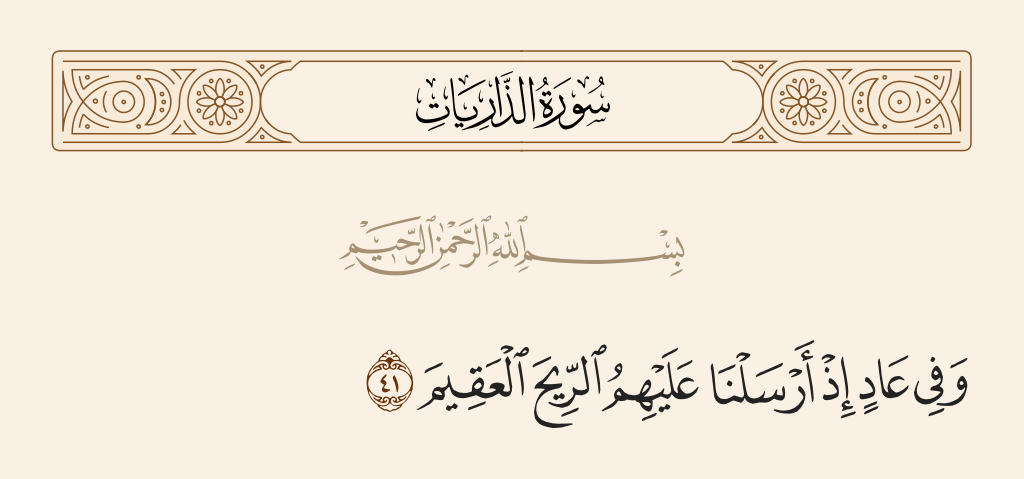 سُورَةُ الذَّارِيَاتِ
بِسْمِ ٱللَّهِ ٱلرَّحْمَٰنِ ٱلرَّحِيمِ
وَفِى عَادٍ إِذْ أَرْسَلْنَا عَلَيْهِمُ ٱلرِّيحَ ٱلْعَقِيمَ ٤١